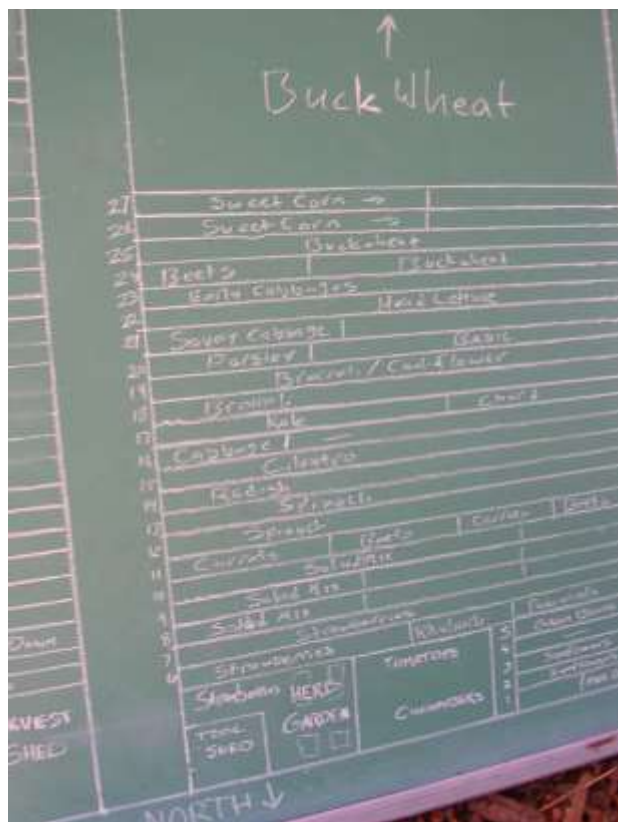 ↑
Buck Wheat
27 Sweet Corn →
26 Sweet Corn →
25 Buckwheat
24 Beets Buckwheat
23 Early Cabbages
22 Head Lettuce
21 Savoy Cabbage
20 Parsley Basil
19 Broccoli / Cauliflower
18 Broccoli
17 Kale Chard
16 Cabbage
15 Cilantro
14 Radish
13 Spinach
12 Spinach
11 Carrots Beets Carrots Beets
10 Salad Mix
9 Salad Mix
8 Salad Mix
7 Strawberries
6 Strawberries Rhubarb
Strawberries HERB GARDEN
TOOL SHED
TOMATOES
CUCUMBERS
5
4
3 Sunflowers
2 Sunflowers
1
SHED
NORTH ↓